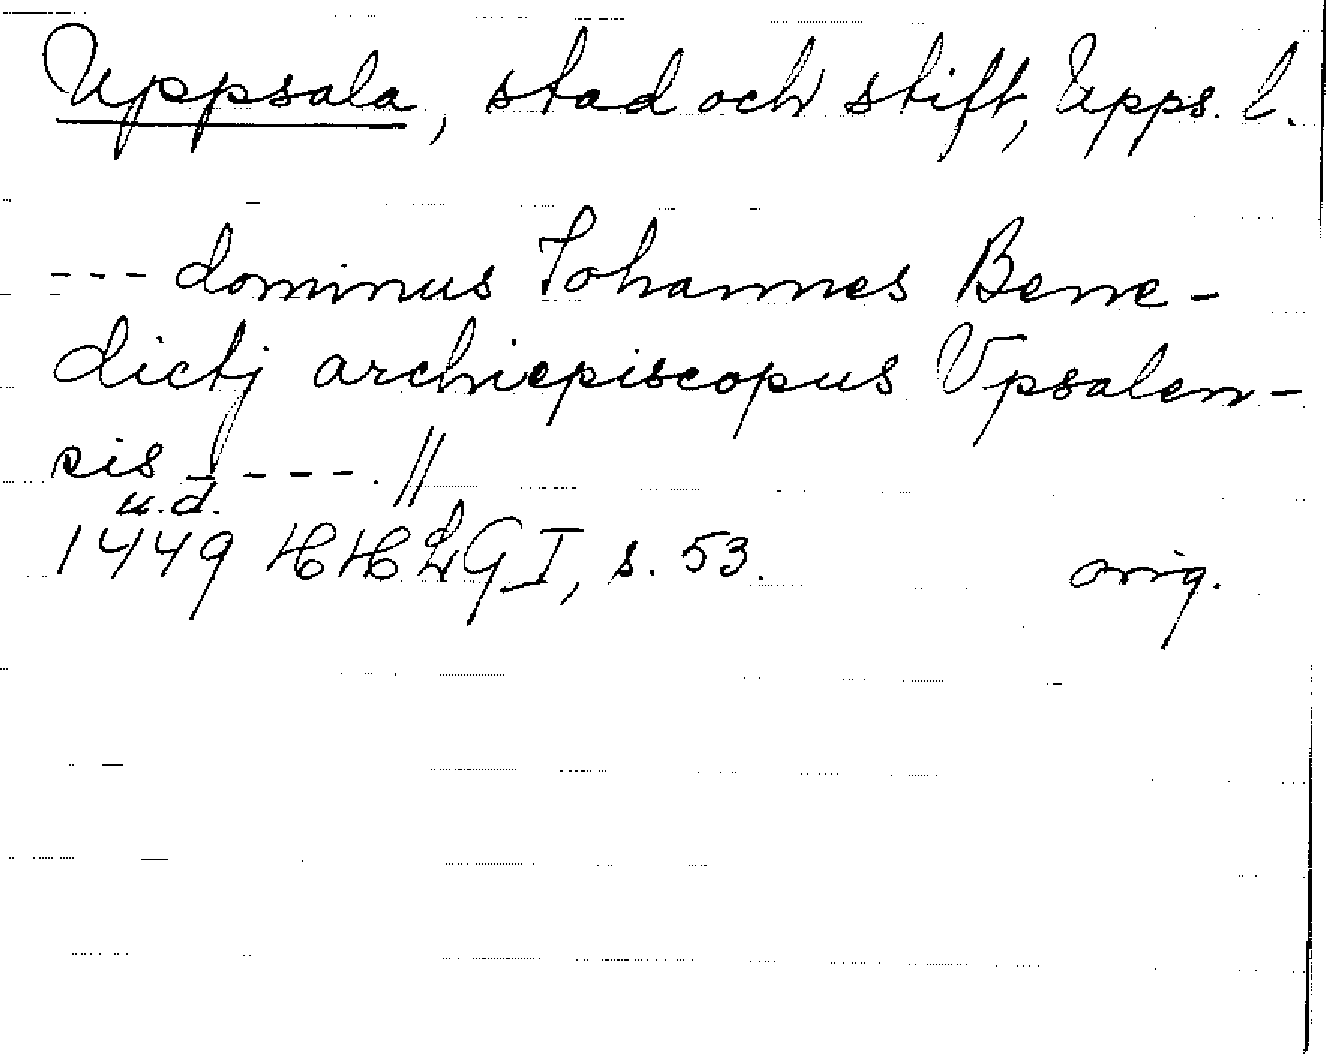 Uppsala, stad och stift, Upps. l.
--- dominus Johannes Bene-
dictj archiepiscopus Vpsalen-
sis ----. //
u.d.
1449 HHLG I, s. 53. orig.